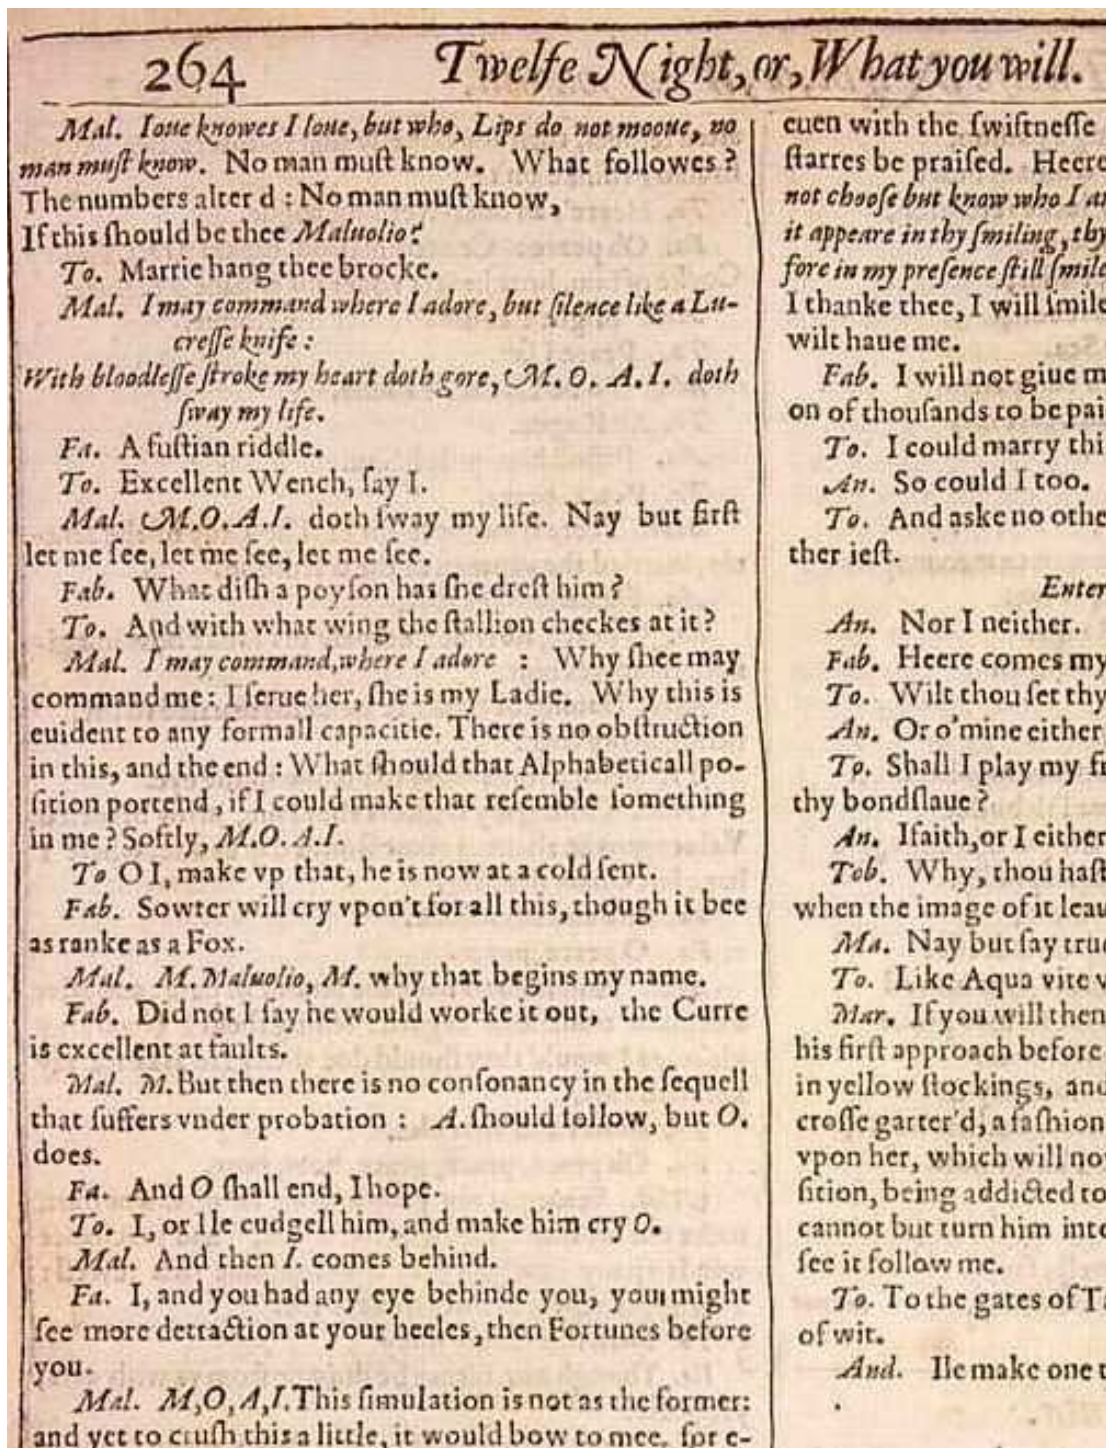 264 Twelfe Night, or, What you will.
Mal. Ioue knowes I loue, but who, Lips do not mooue, no
man muſt know. No man muſt know. What followes?
The numbers alter d : No man muſt know,
If this ſhould be thee Maluolio?
To. Marrie hang thee brocke.
Mal. I may command where I adore, but ſilence like a Lu-
creſſe knife :
With bloodleſſe ſtroke my heart doth gore, M. O. A. I. doth
ſway my life.
Fa. A fuſtian riddle.
To. Excellent Wench, ſay I.
Mal. M.O.A.I. doth ſway my life. Nay but firſt
let me ſee, let me ſee, let me ſee.
Fab. What diſh a poyſon has ſhe dreſt him?
To. And with what wing the ſtallion checkes at it?
Mal. I may command, where I adore : Why ſhee may
command me : I ſerue her, ſhe is my Ladie. Why this is
euident to any formall capacitie. There is no obſtruction
in this, and the end : What ſhould that Alphabeticall po-
ſition portend, if I could make that reſemble ſomething
in me? Softly, M.O.A.I.
To O I, make vp that, he is now at a cold ſent.
Fab. Sowter will cry vpon't for all this, though it bee
as ranke as a Fox.
Mal. M. Maluolio, M. why that begins my name.
Fab. Did not I ſay he would worke it out, the Curre
is excellent at faults.
Mal. M. But then there is no conſonancy in the ſequell
that ſuffers vnder probation : A. ſhould follow, but O.
does.
Fa. And O ſhall end, I hope.
To. I, or Ile cudgell him, and make him cry O.
Mal. And then I. comes behind.
Fa. I, and you had any eye behinde you, you might
ſee more detraction at your heeles, then Fortunes before
you.
Mal. M,O,A,I. This ſimulation is not as the former:
and yet to cruſh this a little, it would bow to mee, for e-
euen with the ſwiftneſſe
ſtarres be praiſed. Heere
not chooſe but know who I a
it appeare in thy ſmiling, thy
fore in my preſence ſtill ſmile
I thanke thee, I will ſmile
wilt haue me.
Fab. I will not giue m
on of thouſands to be pai
To. I could marry thi
An. So could I too.
To. And aske no othe
ther ieſt.
Enter
An. Nor I neither.
Fab. Heere comes my
To. Wilt thou ſet thy
An. Or o'mine either
To. Shall I play my fr
thy bondſlaue?
An. Ifaith, or I either
Tob. Why, thou haſt
when the image of it leau
Ma. Nay but ſay true
To. Like Aqua vite
Mar. If you will then
his firſt approach before
in yellow ſtockings, and
croſſe garter'd, a faſhion
vpon her, which will no
ſition, being addicted to
cannot but turn him into
ſee it follow me.
To. To the gates of T
of wit.
And. Ile make one